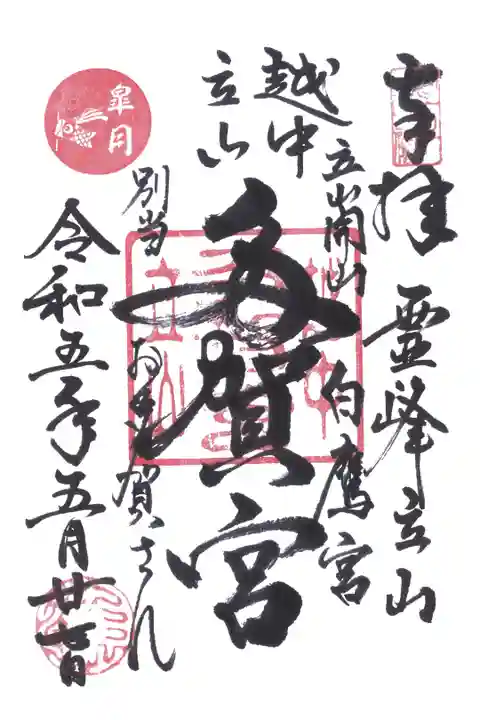 奉拝 霊峰立山
立山開山 白鷹宮
越中
立山
多賀宮
別当 お多賀さん
皐月
令和五年五月廿七日